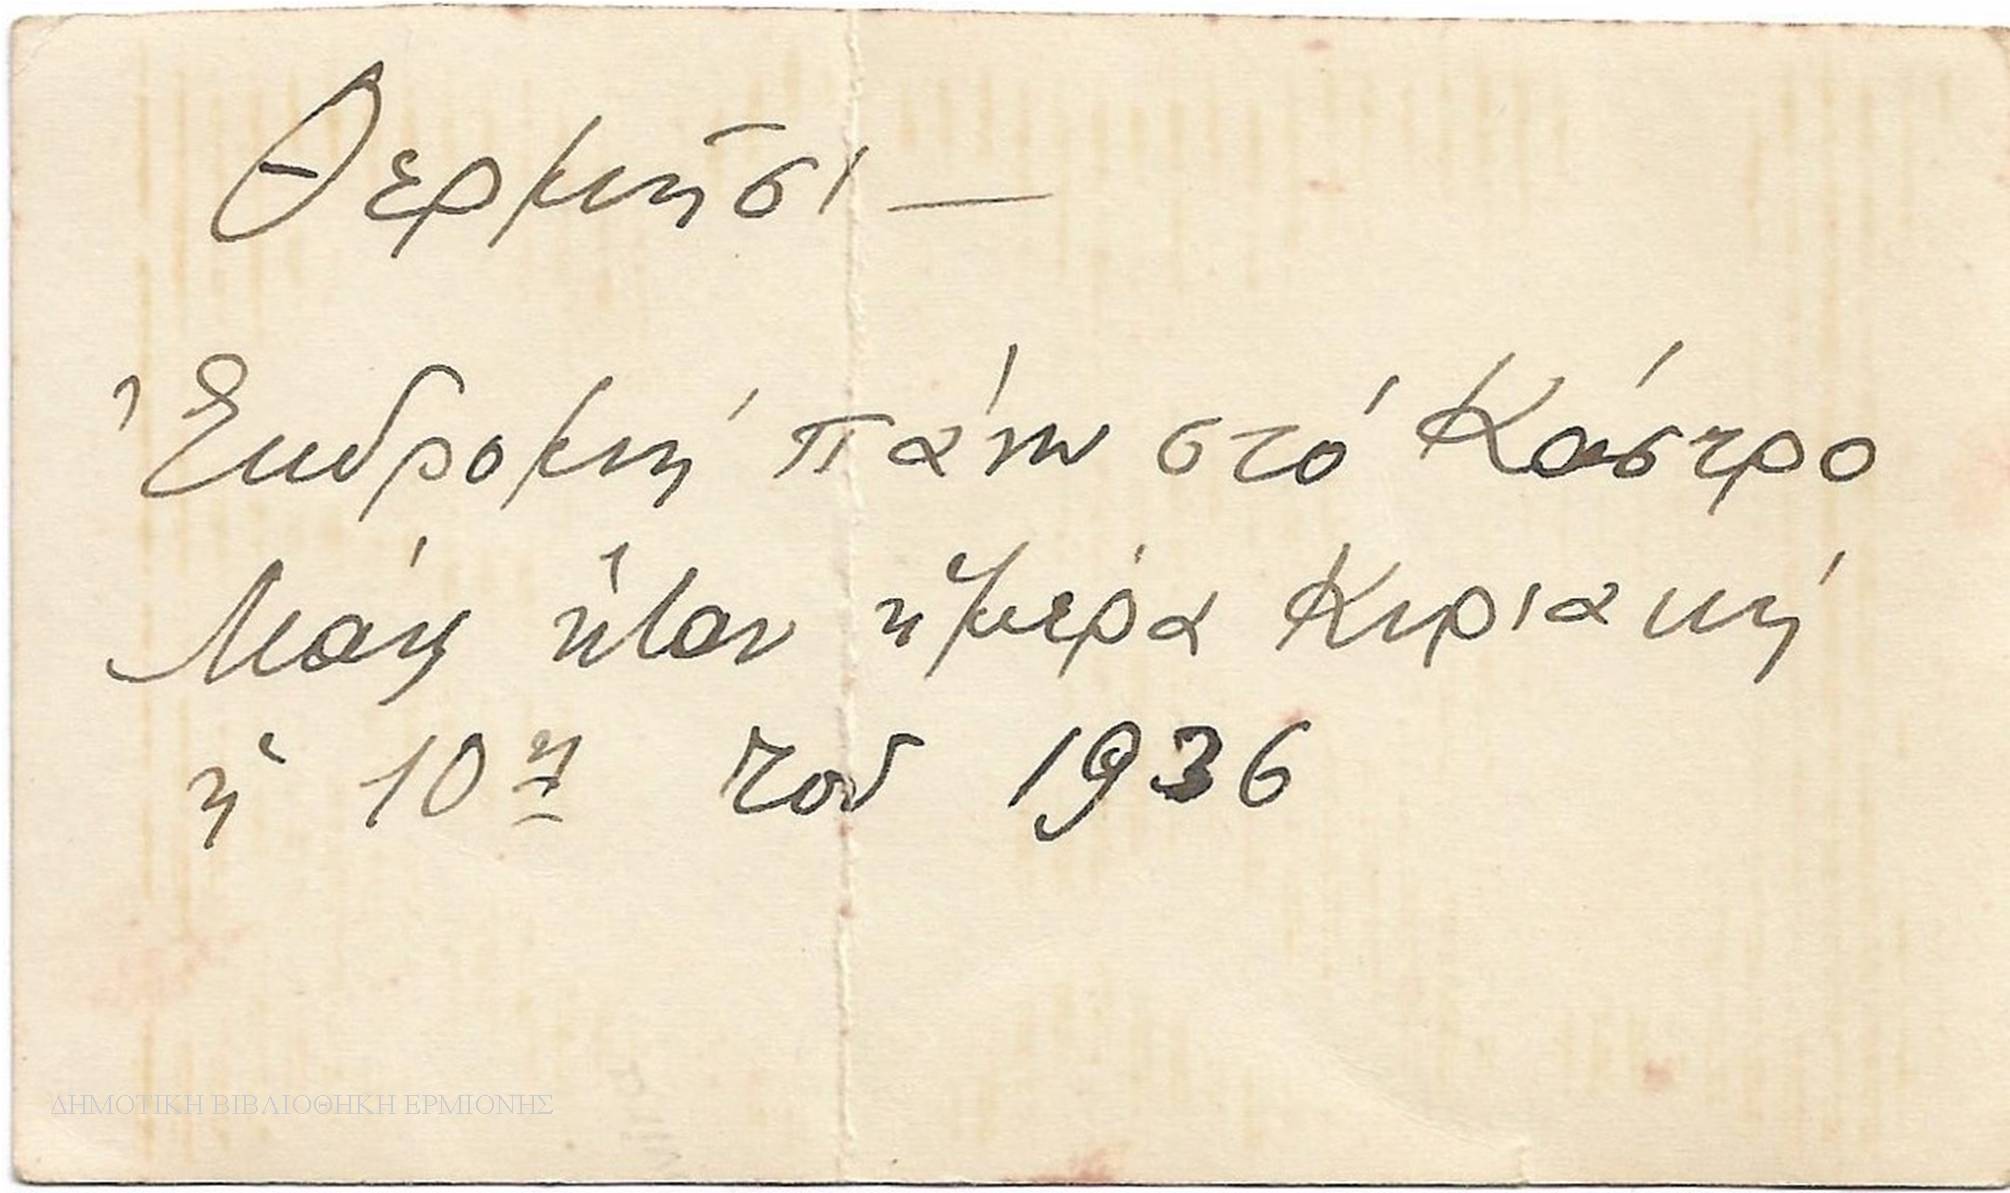 Θερμῆσι —
Ἐκδρομή πάνω στό Κάστρο
Μάη ἦταν ἡμέρα Κυριακή
ἡ 10η του 1936
ΔΗΜΟΤΙΚΗ ΒΙΒΛΙΟΘΗΚΗ ΕΡΜΙΟΝΗΣ